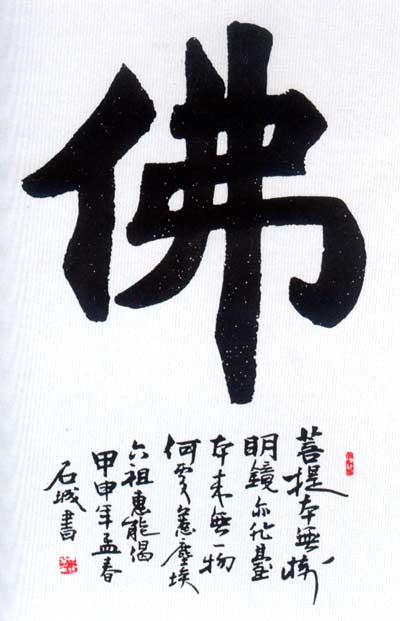 佛
菩提本無樹
明鏡亦非臺
本来無一物
何處惹塵埃
六祖惠能偈
甲申年孟春
石城書